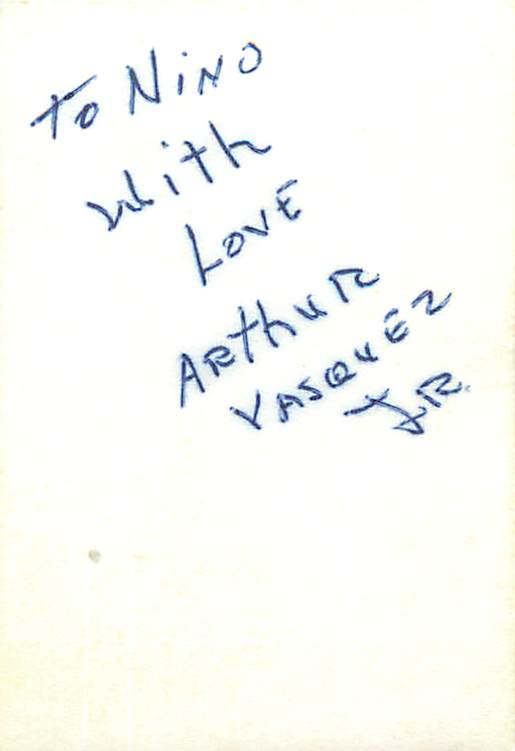 To NiNO
With
LOVE
ARthuR
VASQUEZ
JR